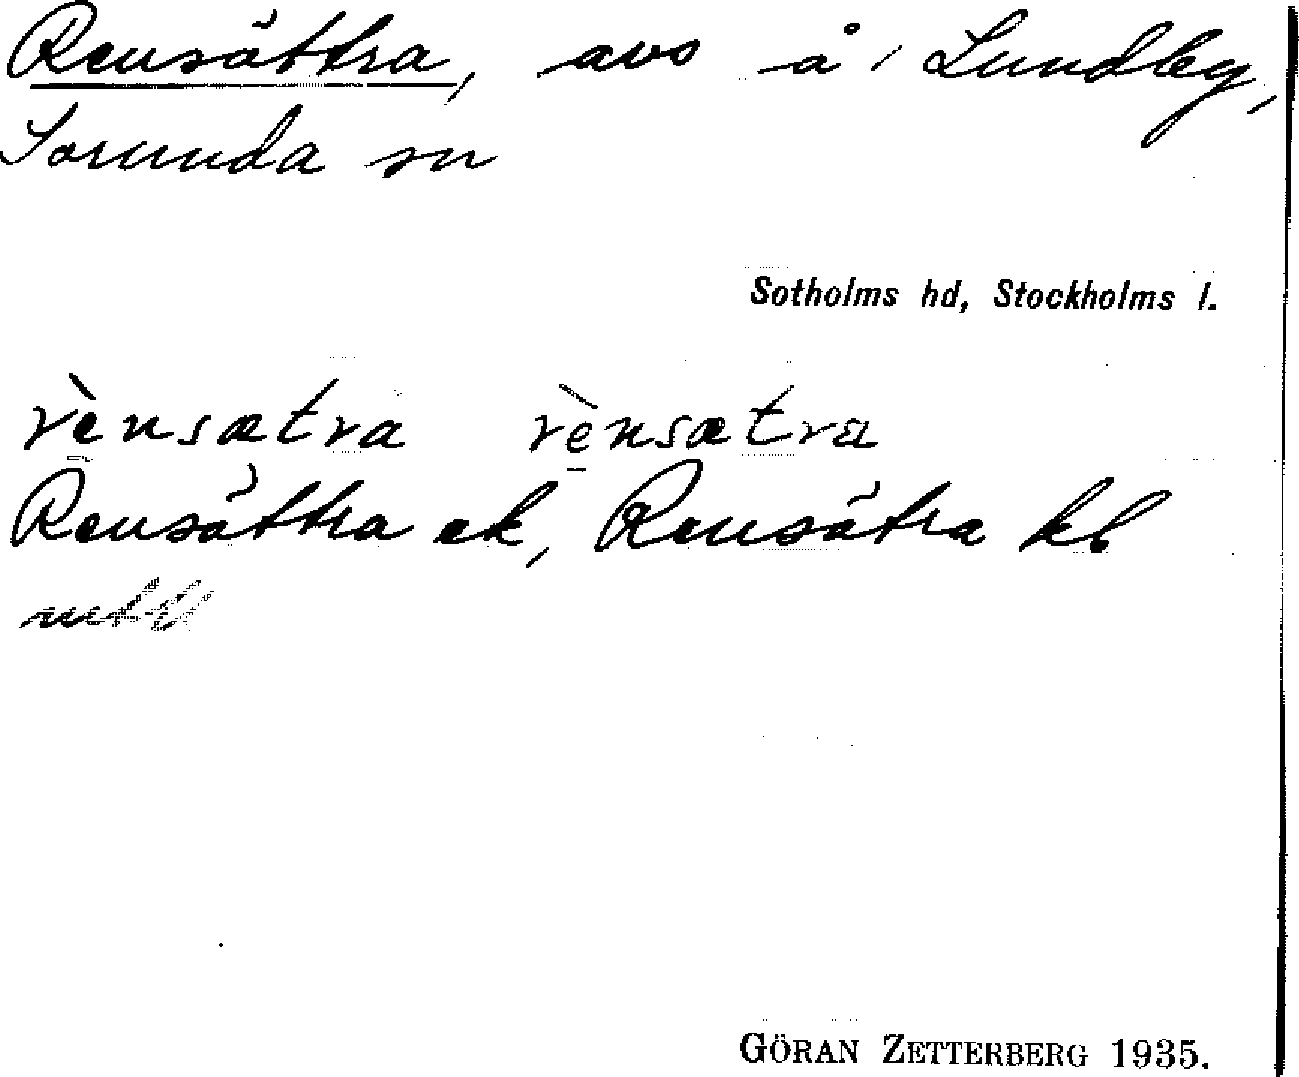 Rensättra, avs å Lundby,
Sorunda sn
Sotholms hd, Stockholms l.
rènsætra rènsætra
Rensättra ek, Rensätra kb
GÖRAN ZETTERBERG 1935.